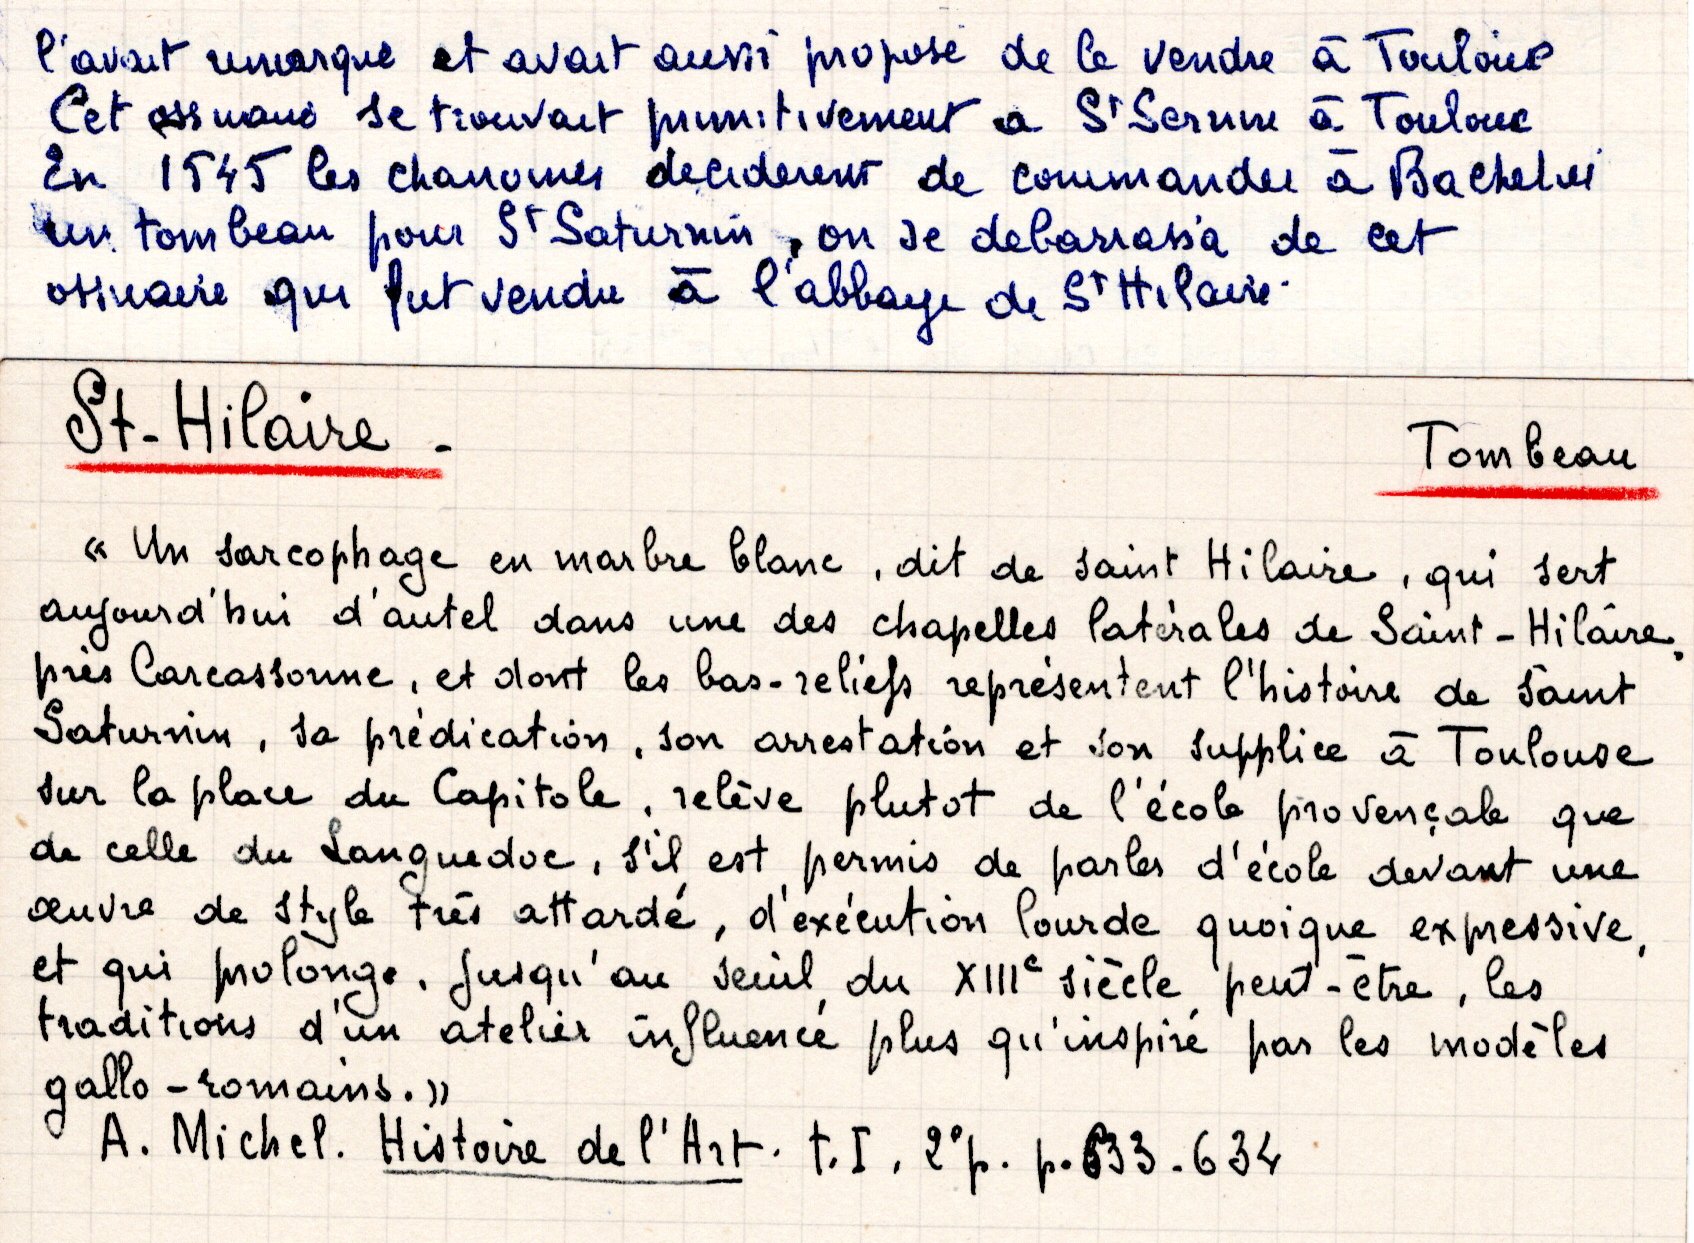 l'avait remarqué et avait aussi proposé de le vendre à Toulouse
Cet ossuaire se trouvait primitivement a St Sernin à Toulouse
En 1545 les chanoines deciderent de commander à Bachelier
un tombeau pour St Saturnin, on se debarrassa de cet
ossuaire qui fut vendu à l'abbaye de St Hilaire.
St-Hilaire -
Tombeau
« Un sarcophage en marbre blanc, dit de saint Hilaire, qui sert
aujourd'hui d'autel dans une des chapelles latérales de Saint-Hilaire,
près Carcassonne, et dont les bas-reliefs représentent l'histoire de saint
Saturnin, sa prédication, son arrestation et son supplice à Toulouse
sur la place du Capitole, relève plutot de l'école provençale que
de celle du Languedoc, s'il est permis de parler d'école devant une
œuvre de style très attardé, d'exécution lourde quoique expressive,
et qui prolonge, jusqu'au seuil du XIIIe siècle peut-être, les
traditions d'un atelier influencé plus qu'inspiré par les modèles
gallo-romains.»
A. Michel. Histoire de l'Art. t. I, 2e p. p. 633-634